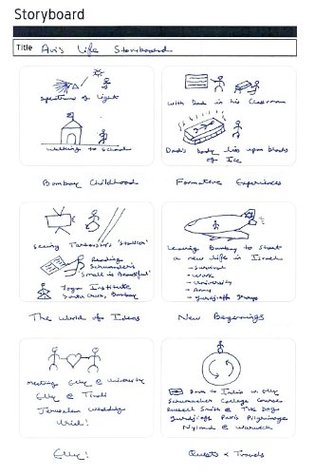 Storyboard
Title Avi's Life Storyboard
Spectrum of Light
Walking to School
Bombay Childhood
With Dad in his Classroom
Dad's body lies upon blocks
of Ice
Formative Experiences
Seeing Tarkovsky's 'Stalker'
Reading
Schumacher's
'Small is Beautiful'
Yoga Institute
Santa Cruz, Bombay
The World of Ideas
Leaving Bombay to start
a new life in Israel
→ Survival
→ Work
→ University
→ Army
→ Gurdjieff groups
New Beginnings
Meeting Elly @ University
Elly @ Tivoli
Jerusalem Wedding
Uriel!
Elly!
Back to India w Elly
Schumacher College Course
Russell Smith @ The Dog
Gurdjieff Paris Pilgrimage
@ Warwick
Quests & Travels